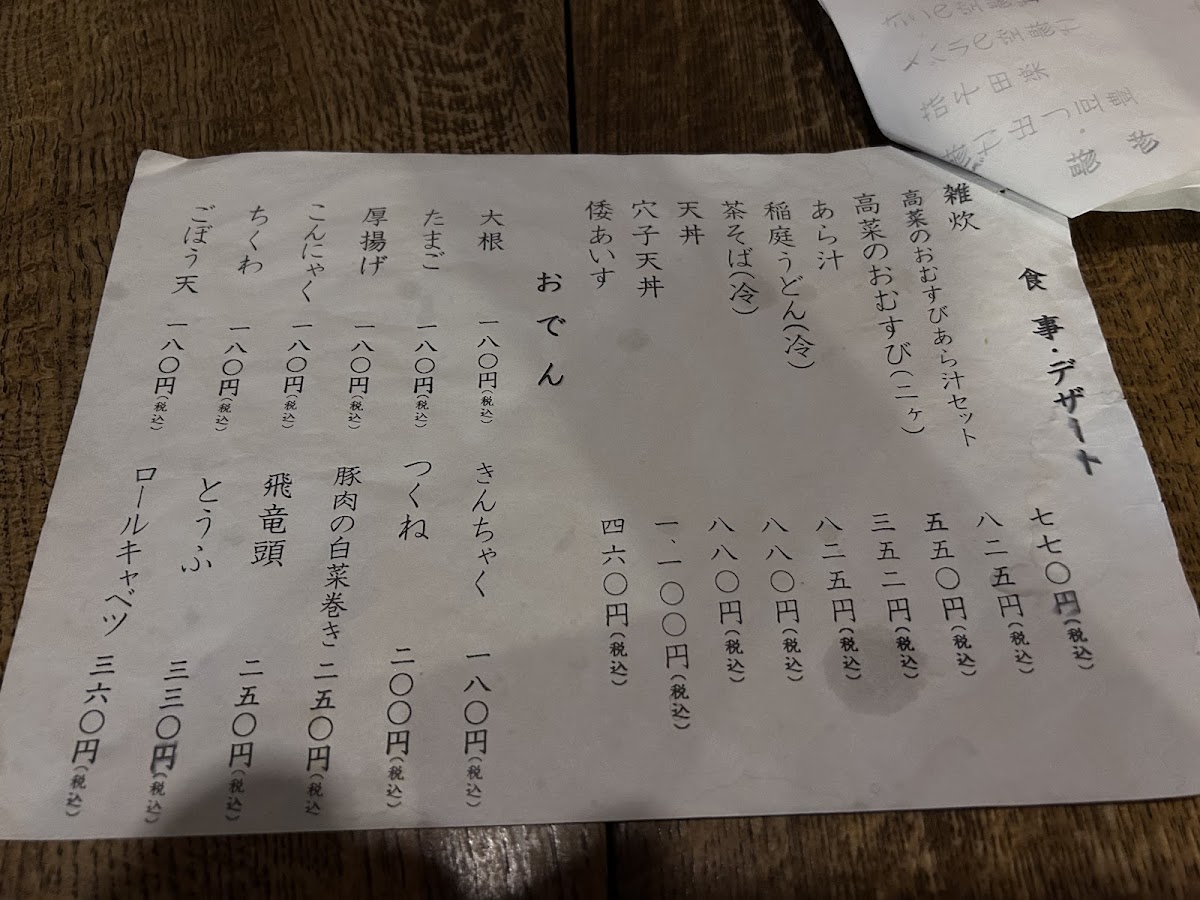 食事・デザート
雑炊 七七〇円(税込)
高菜のおむすびあら汁セット 八二五円(税込)
高菜のおむすび(二ヶ) 五五〇円(税込)
あら汁 三五二円(税込)
稲庭うどん(冷) 八二五円(税込)
茶そば(冷) 八八〇円(税込)
天丼 八八〇円(税込)
穴子天丼 一、一〇〇円(税込)
倭あいす 四六〇円(税込)
おでん
大根 一八〇円(税込)
たまご 一八〇円(税込)
厚揚げ 一八〇円(税込)
こんにゃく 一八〇円(税込)
ちくわ 一八〇円(税込)
ごぼう天 一八〇円(税込)
きんちゃく 一八〇円(税込)
つくね 二〇〇円(税込)
豚肉の白菜巻き 二五〇円(税込)
飛竜頭 二五〇円(税込)
とうふ 三三〇円(税込)
ロールキャベツ 三六〇円(税込)